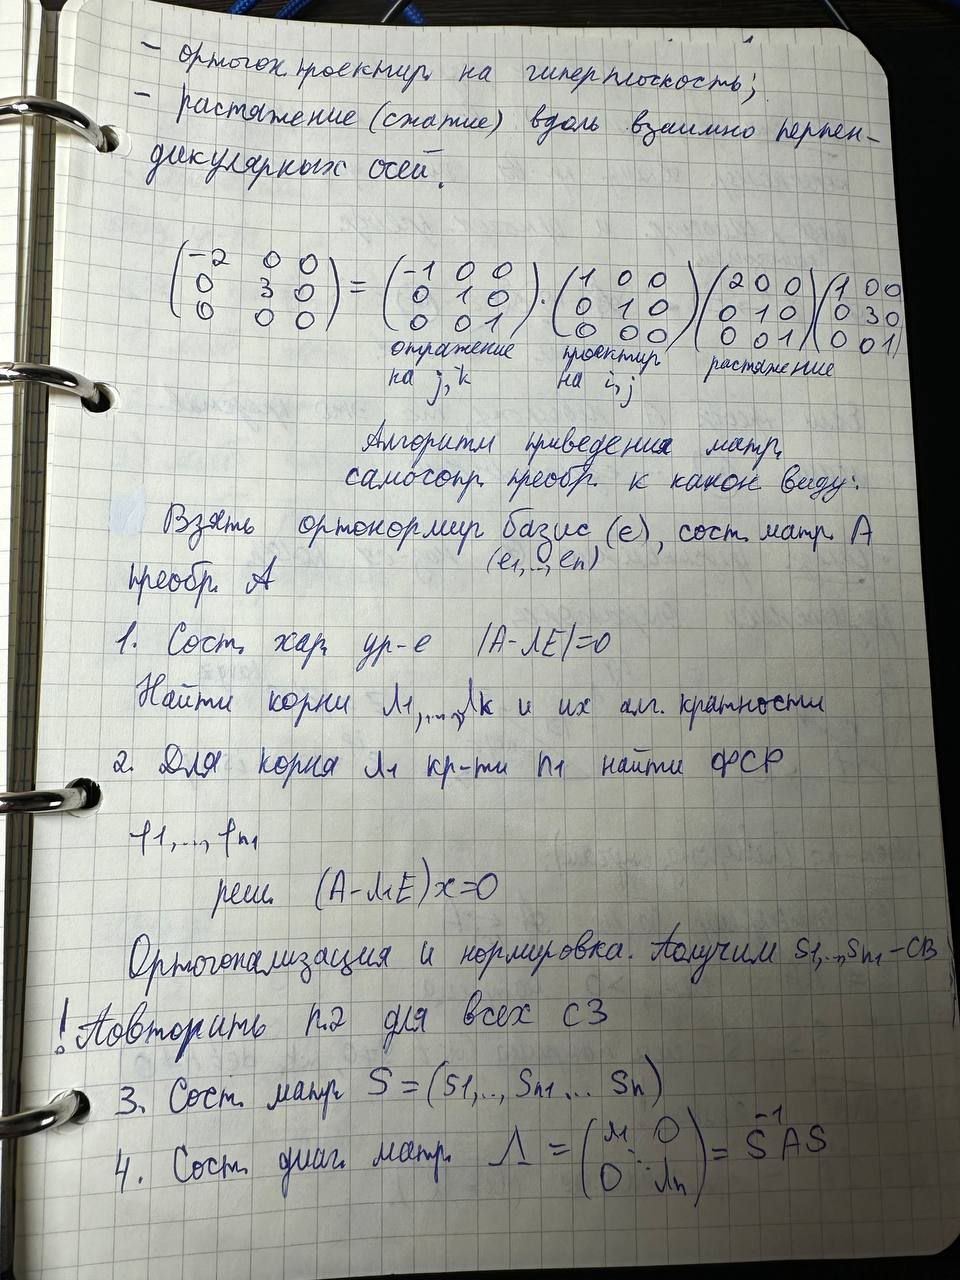 - ортогон. проектир. на гиперплоскость;
- растяжение (сжатие) вдоль взаимно перпен-
дикулярных осей.
(-2 0 0; 0 3 0; 0 0 0) = (-1 0 0; 0 1 0; 0 0 1) · (1 0 0; 0 1 0; 0 0 0) (2 0 0; 0 1 0; 0 0 1) (1 0 0; 0 3 0; 0 0 1)
отражение проектир растяжение
на j, k на i, j
Алгоритм приведения матр.
самосопр. преобр. к канон виду:
Взять ортонормир базис (e), сост. матр. A
(e1,..., en)
преобр. A
1. Сост. хар. ур-е |A-λE|=0
Найти корни λ1,...,λk и их алг. кратности
2. Для корня λ1 кр-ти n1 найти ФСР
f1,..., fn1
реш. (A-λ1E)x=0
Ортогонализация и нормировка. Получим s1,..,sn1 - СВ
! Повторить п.2 для всех СЗ
3. Сост. матр. S = (s1,.., sn1 ... sn)
4. Сост. диаг. матр. Λ = (λ1 0; ⋱; 0 λn) = S⁻¹AS